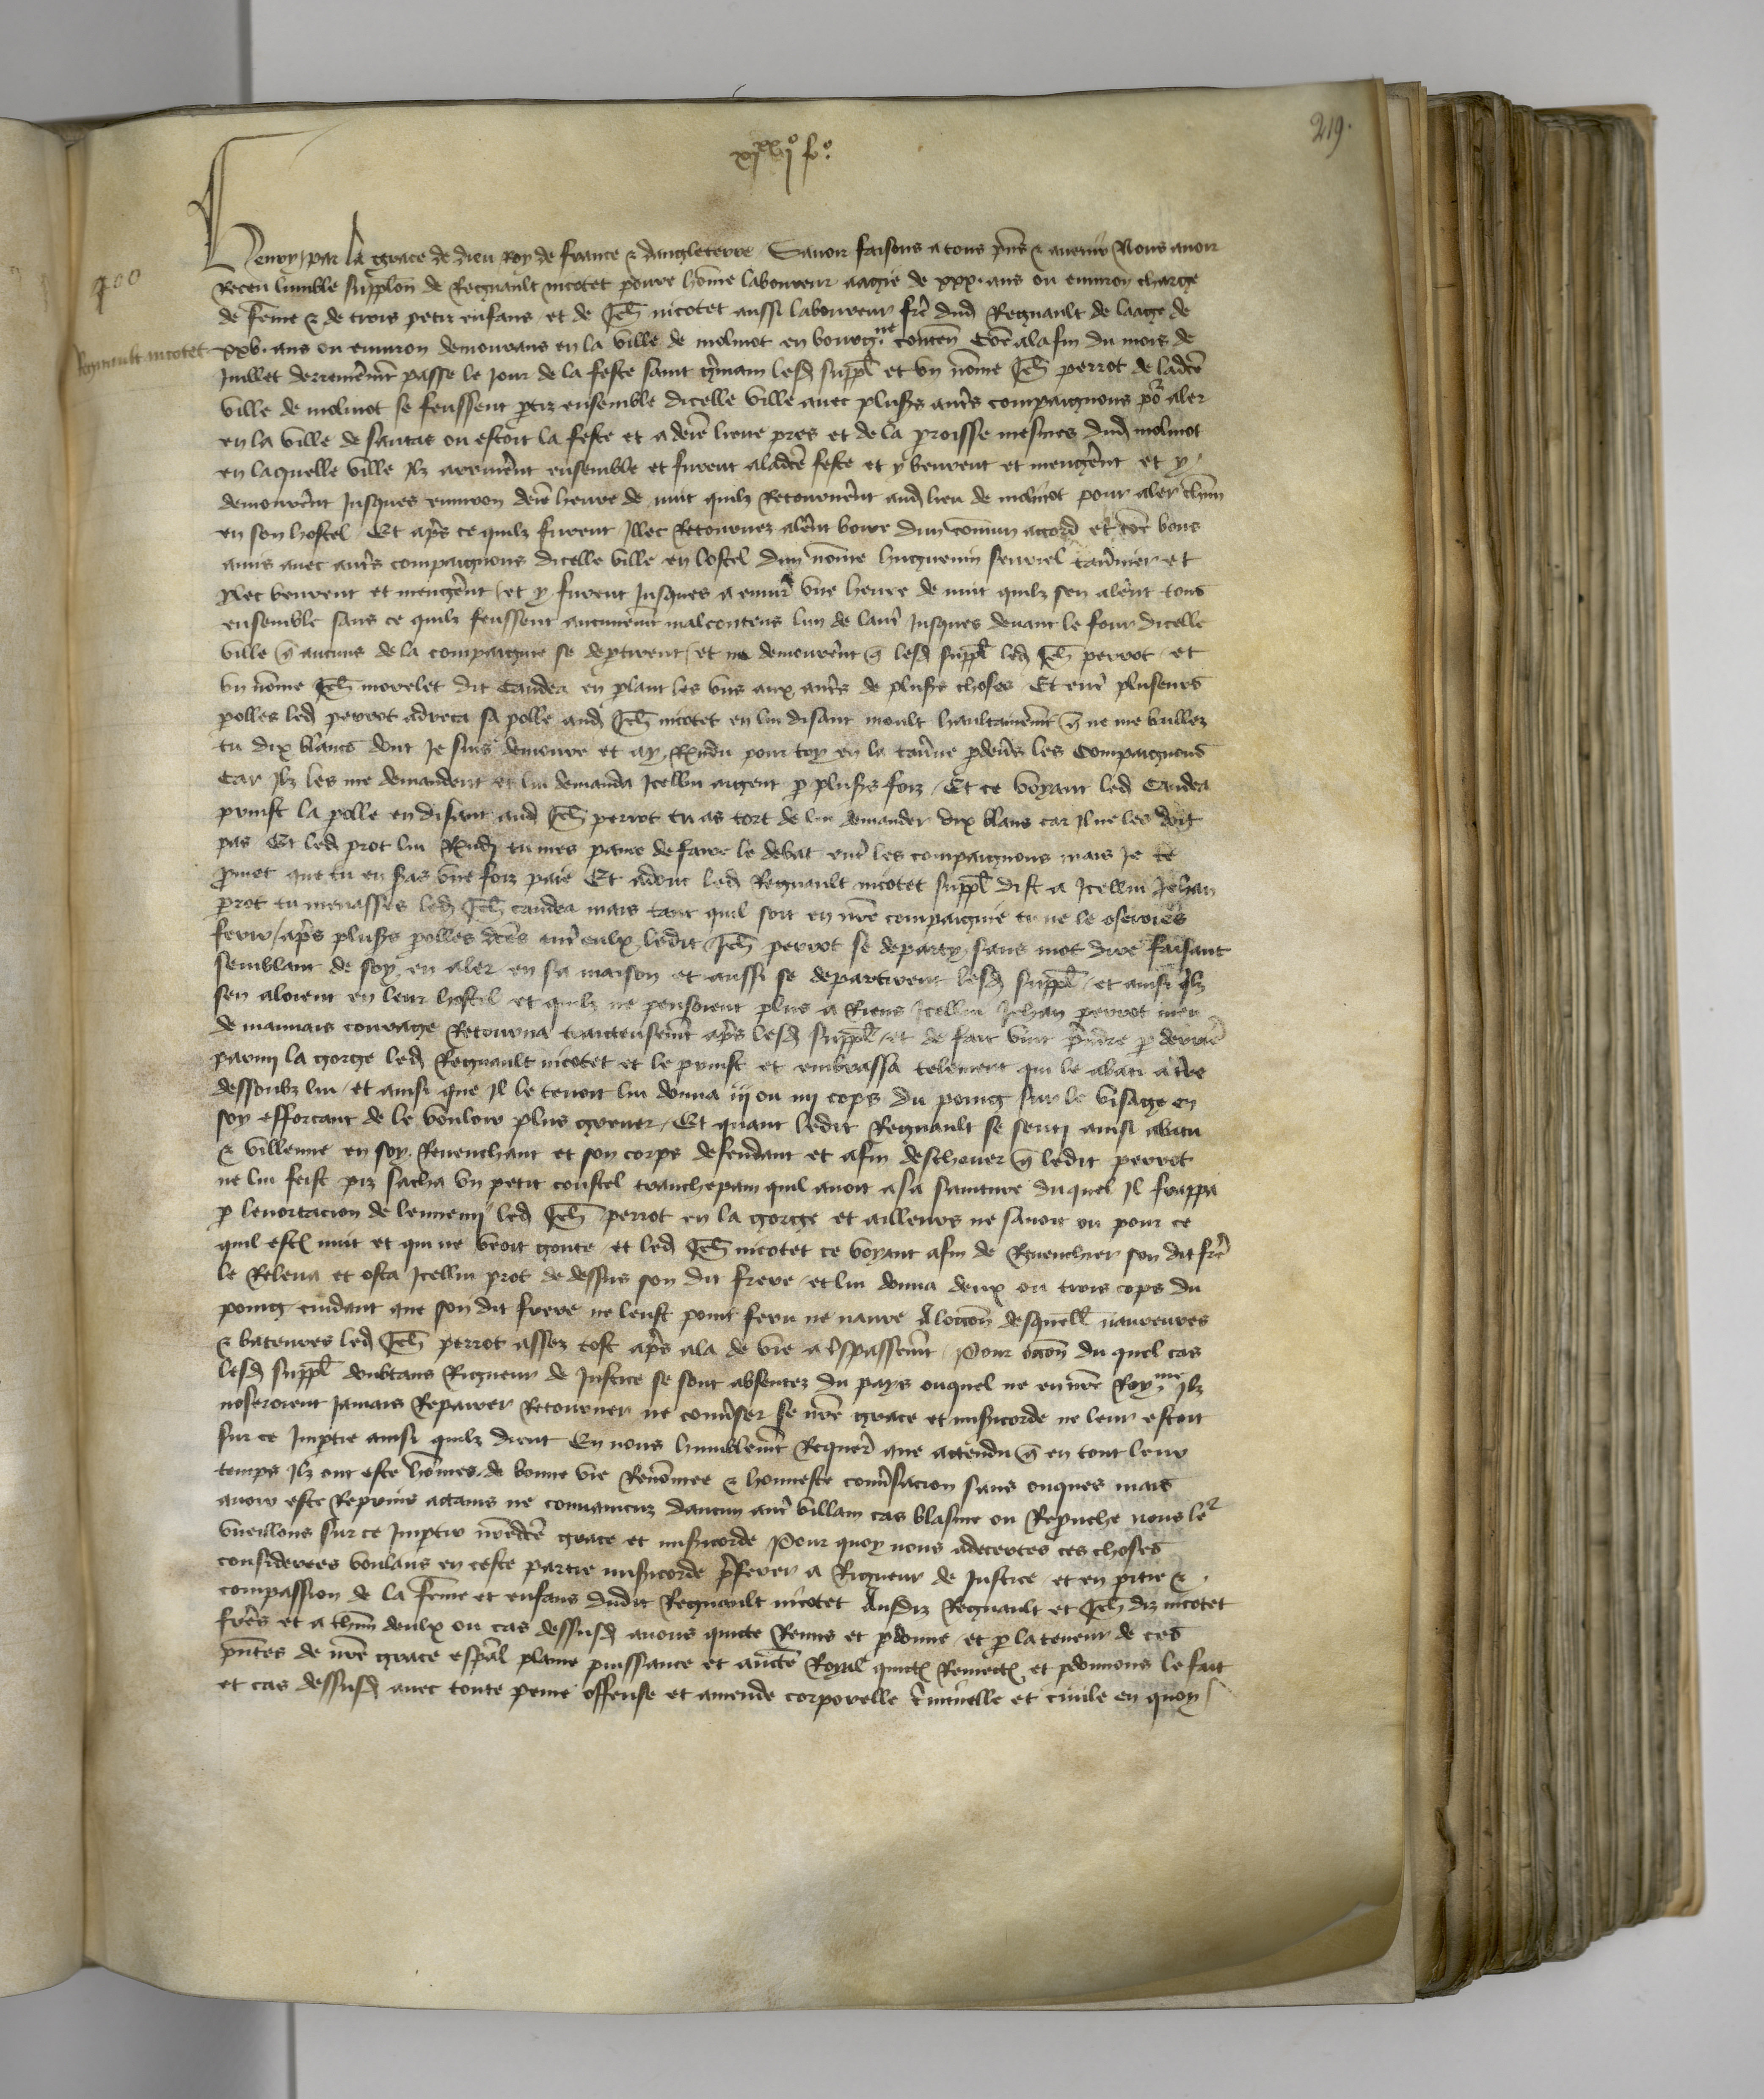 219.
xi xx i fo.
Henry par la grace de dieu Roy de france & dangleterre Savoir faisons a tous pñs & avenir Nous avoir
400
Receu lumble supplon de Regnault nicotet povre hõme laboureur aagie de xxx. ans ou environ charge
de fẽme & de trois petis enfans et de Jeh nicotet aussi laboureur frẽ dud Regnault de laage de
Regnault nicotet
xxv. ans ou environ demourans en la ville de molinot en bourg.ne conteñ Cõe ala fin du mois de
Juillet derrenemẽt passe le Jour de la feste saint gmain lesd suppl et un nõme Jeh perrot de ladcẽ
ville de molinot se feussent ptiz ensemble dicelle ville avec plus's autẽs compaignons po aler
en la ville de santae ou estoit la feste et a demĩe lieue pres et de la proisse mesmes dud molinot
en laquelle ville Ilz arrivẽrnt ensemble et furent aladcẽ feste et y beurent et mengẽrnt et y
demourẽrnt Jusques environ demĩe heure de nuit quilz Retournẽrnt aud lieu de molinot pour aler chũn
en son hostel Et apẽs ce quilz furent Illec Retournez alẽrnt boire dun comun accord et cõe bons
amis avec autẽs compaignons dicelle ville en lostel dun nõme huguenin tavnier et
Illec beurent et mengẽrnt et y furent Jusques a envir une heure de nuit quilz sen alẽrnt tous
ensemble sans ce quilz feussent aucunemẽt malcontens lun de lautẽ Jusques devant le four dicelle
ville q̃ aucuns de la compaignie se deptirent et ne demourẽrnt q̃ lesd suppl led Jeh perrot et
un nõme Jeh morelet dit Caudea en plant les uns aux autẽs de pluss choses Et entẽ pluseurs
polles led perrot adreca sa polle aud Jeh nicotet en lui disant moult haultainemẽt q̃ ne me bailles
tu dix blancs dont Je suis demoure et ay Rndu pour toy en la tavne pdevs les Compaignons
Car Ilz les me demandent et lui demanda Icellui argent p pluss foiz Et ce voyant led Caudea
prinst la polle en disant aud Jeh perrot tu as tort de lui demander dix blans car Il ne les doit
pas Et led prot lui Rndi tu mes paine de faire le debat entẽ les compaignons mais Je te
pmet que tu en sas une foiz paie Et adonc led Regnault nicotet suppl dist a Icellui Jehan
prot tu menasses led Jeh caudea mais tant quil soit en nrẽ compaignie tu ne le oseroies
ferir apẽs pluss polles dcẽs entẽ eulx ledit Jeh perrot se party sans mot dire faisant
semblant de soy en aler en sa maison et aussi se departirent lesd suppl et ainsi qlz
sen aloient en leur hostel et quilz ne pensoient plus a Riens Icellui Jehan perrot meu
de mauvais courage Retourna traiteusemẽt apẽs lesd suppl et de fait vint prẽdre p derrierẽ
parmy la gorge led Regnault nicotet et le prinst et embrassa telement qui le abati a trẽe
dessoubz lui et ainsi que Il le tenoit lui donna iij ou iiij cops du poing sur le visage en
soy efforcant de le vouloir plus grever Et quant ledit Regnault se senti ainsi abatu
& villenne en soy Revenchant et son corps defendant et afin deschever q̃ ledit perrot
ne lui feist piz sacha un petit coustel tranchepain quil avoit a sa sainture duquel Il frappa
p lenortacion de lennemi led Jeh perrot en la gorge et ailleurs ne savoit ou pour ce
quil est nuit et qui ne veoit goute et led Jeh nicotet ce voyant afin de Rvenchier son dit frẽ
le Releva et osta Icellui prot de dessus son dit frere et lui donna deux ou trois cops du
poing cuidant que son dit frere ne leust point feru ne navre A loccon desquell navreures
& bateures led Jeh perrot assez tost apẽs ala de vie a tspassemt Pour occon du quel cas
lesd suppl doubtans Rigueur de Justice se sont absentez du pays ouquel ne en nrẽ Roy.me Ilz
noseroient Jamais Repairer Retourner ne convser se nrẽ grace et misicorde ne leur estoit
sur ce Imptie ainsi quilz dient En nous humblemt Requer que attendu q̃ en tout leur
temps Ilz ont este hõmes de bonne vie Renõmee & honneste convsacion sans onques mais
avoir este Reprins attains ne convaincuz daucun autẽ villain cas blasme ou Repuche nous leʳ
vueillons sur ce Imptir nrẽdcẽ grace et misicorde Pour quoy nous adcertes ces choses
considerees voulans en ceste partie misicorde pferer a Rigueur de Justice et en pitie &
compassion de la fẽme et enfans dudit Regnault nicotet Ausdiz Regnault et Jeh diz nicotet
freẽs et a chũn deulx ou cas dessusd avons quicte Remis et pdonne et p la teneur de ces
pñtes de nrẽ grace espal plaine puissance et auctẽ Royal quictz Remectz et pdonnons le fait
et cas dessusd avec toute peine offense et amende corporelle cminelle et civile en quoy